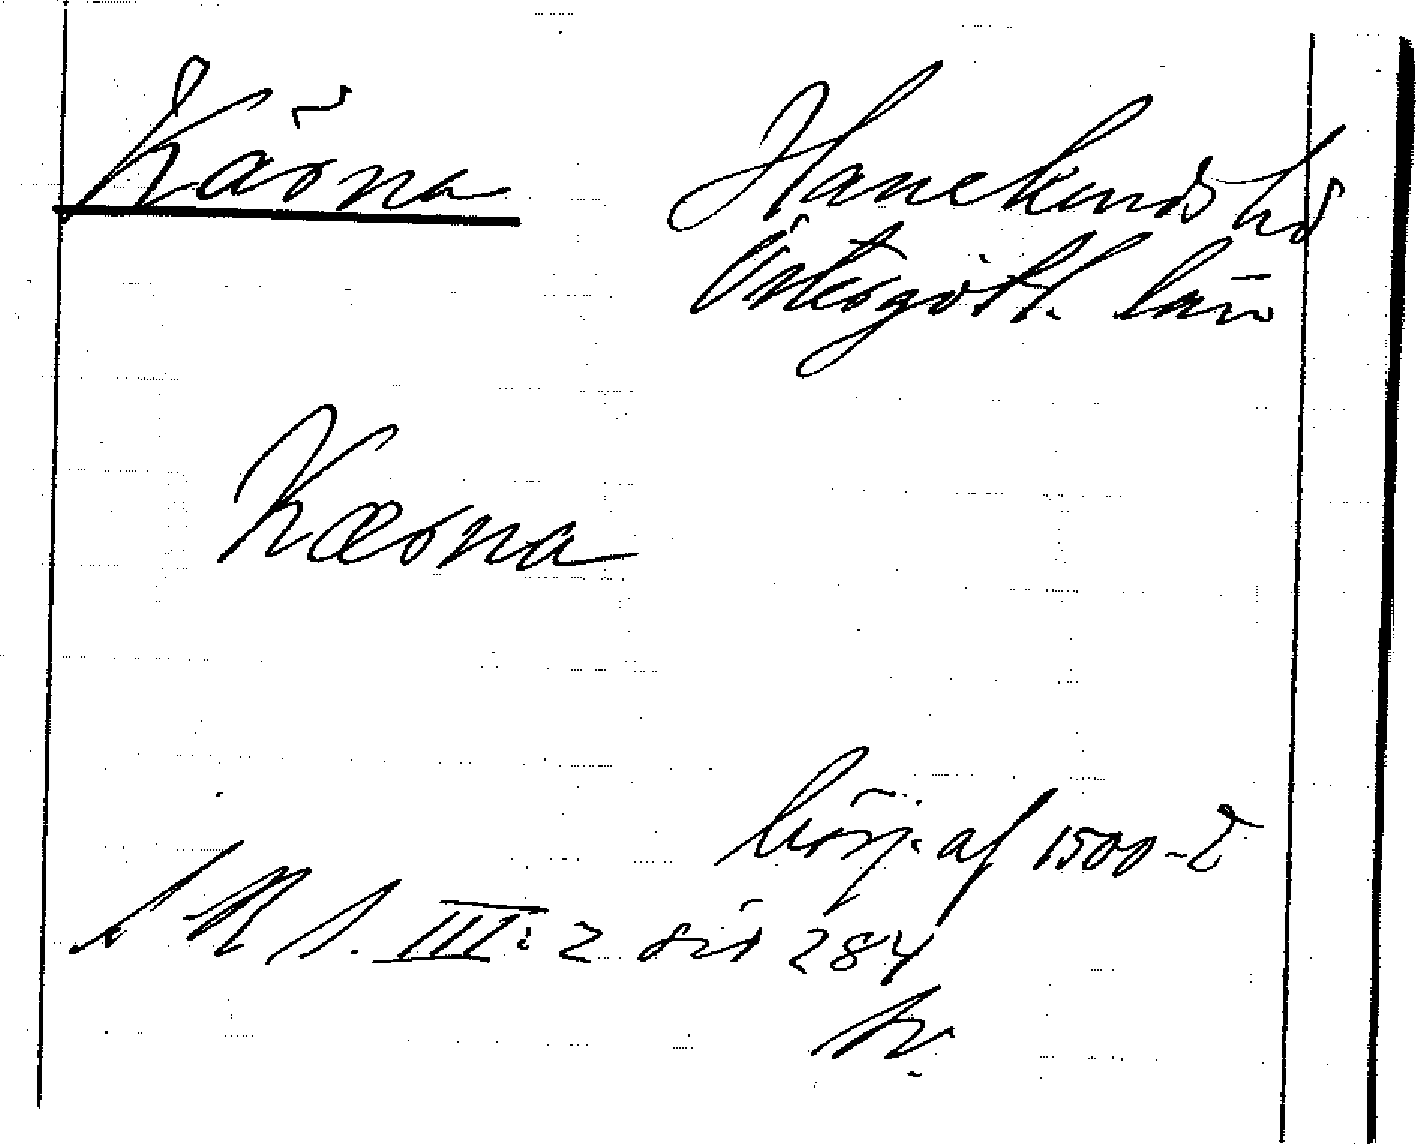 Kärna Hanekinds hd
Östergötl. län
Kærna
börj. af 1500-t
S R S. III: 2 sid 284